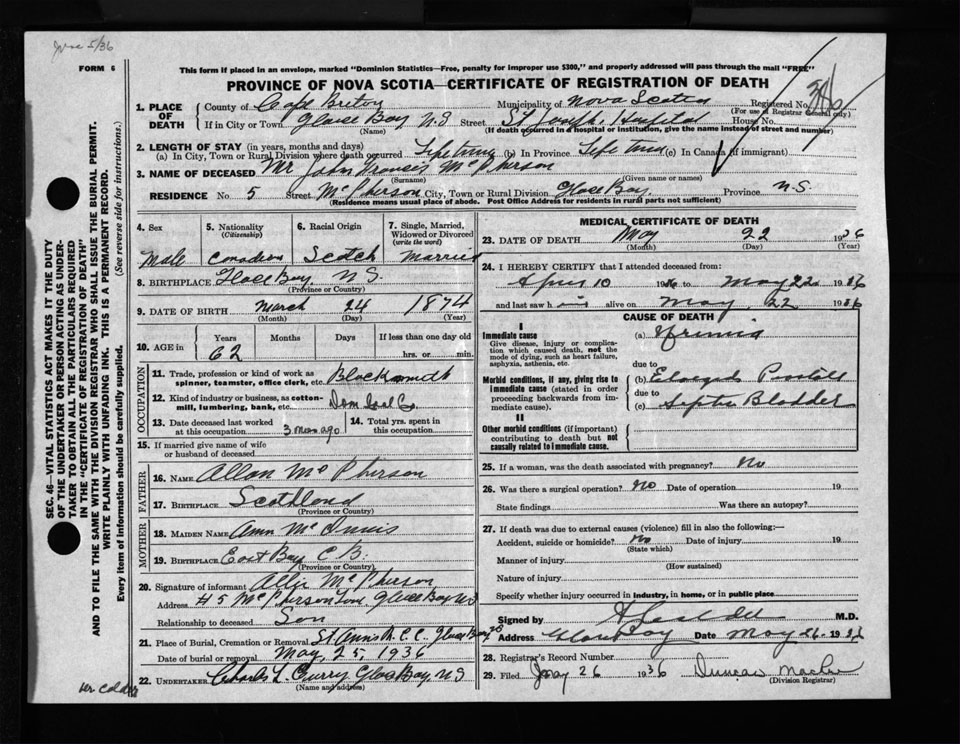 June 5/36
FORM 6
This form if placed in an envelope, marked "Dominion Statistics—Free, penalty for improper use $300," and properly addressed will pass through the mail "FREE"
PROVINCE OF NOVA SCOTIA—CERTIFICATE OF REGISTRATION OF DEATH
1. PLACE OF DEATH
County of Cape Breton Municipality of Nova Scotia Registered No.
(For use of Registrar General only)
If in City or Town Glace Bay N.S Street St Joseph Hospital House No.
(Name) (If death occurred in a hospital or institution, give the name instead of street and number)
2. LENGTH OF STAY (in years, months and days)
(a) In City, Town or Rural Division where death occurred Life time (b) In Province Life time (c) In Canada (if immigrant)
3. NAME OF DECEASED Mr John McPherson
(Surname) (Given name or names)
RESIDENCE No. 5 Street McPherson City, Town or Rural Division Glace Bay Province N.S.
(Residence means usual place of abode. Post Office Address for residents in rural parts not sufficient)
4. Sex Male
5. Nationality (Citizenship) Canadian
6. Racial Origin Scotch
7. Single, Married, Widowed or Divorced (write the word) Married
8. BIRTHPLACE Glace Bay N.S.
(Province or Country)
9. DATE OF BIRTH March 24 1874
(Month) (Day) (Year)
10. AGE in Years Months Days If less than one day old
62 hrs. or min.
OCCUPATION
11. Trade, profession or kind of work as spinner, teamster, office clerk, etc. Blacksmith
12. Kind of industry or business, as cotton-mill, lumbering, bank, etc. Dom Coal Co
13. Date deceased last worked at this occupation 3 mos ago
14. Total yrs. spent in this occupation
15. If married give name of wife or husband of deceased
FATHER
16. NAME Allan McPherson
17. BIRTHPLACE Scotland
(Province or Country)
MOTHER
18. MAIDEN NAME Ann McInnis
19. BIRTHPLACE East Bay C B.
(Province or Country)
20. Signature of informant Allie McPherson
Address #5 McPherson Lane Glace Bay NS
Relationship to deceased Son
21. Place of Burial, Cremation or Removal St Anns R.C.C. Glace Bay NS
Date of burial or removal May, 25, 1936
22. UNDERTAKER Charles L. Curry Glace Bay, N S
(Name and address)
MEDICAL CERTIFICATE OF DEATH
23. DATE OF DEATH May 22 1936
(Month) (Day) (Year)
24. I HEREBY CERTIFY that I attended deceased from:
April 10 1936 to May 22 1936
and last saw him alive on May 22 1936
CAUSE OF DEATH
I
Immediate cause
Give disease, injury or complication which caused death, not the mode of dying, such as heart failure, asphyxia, asthenia, etc.
(a) Uremia
due to
Morbid conditions, if any, giving rise to immediate cause (stated in order proceeding backwards from immediate cause).
(b) Enlarged Prostate
due to
(c) Septic Bladder
II
Other morbid conditions (if important) contributing to death but not causally related to immediate cause.
25. If a woman, was the death associated with pregnancy? No
26. Was there a surgical operation? No Date of operation 19
State findings Was there an autopsy?
27. If death was due to external causes (violence) fill in also the following:—
Accident, suicide or homicide? No Date of injury 19
(State which)
Manner of injury
(How sustained)
Nature of injury
Specify whether injury occurred in industry, in home, or in public place
Signed by M.D.
Address Glace Bay Date May 26 1936
28. Registrar's Record Number
29. Filed May 26 1936 Duncan
(Division Registrar)
SEC. 46—VITAL STATISTICS ACT MAKES IT THE DUTY
OF THE UNDERTAKER OR PERSON ACTING AS UNDER-
TAKER TO OBTAIN ALL THE PARTICULARS REQUIRED
IN THE "CERTIFICATE OF REGISTRATION OF DEATH"
AND TO FILE THE SAME WITH THE DIVISION REGISTRAR WHO SHALL ISSUE THE BURIAL PERMIT.
WRITE PLAINLY WITH UNFADING INK. THIS IS A PERMANENT RECORD.
Every item of information should be carefully supplied. (See reverse side for instructions.)